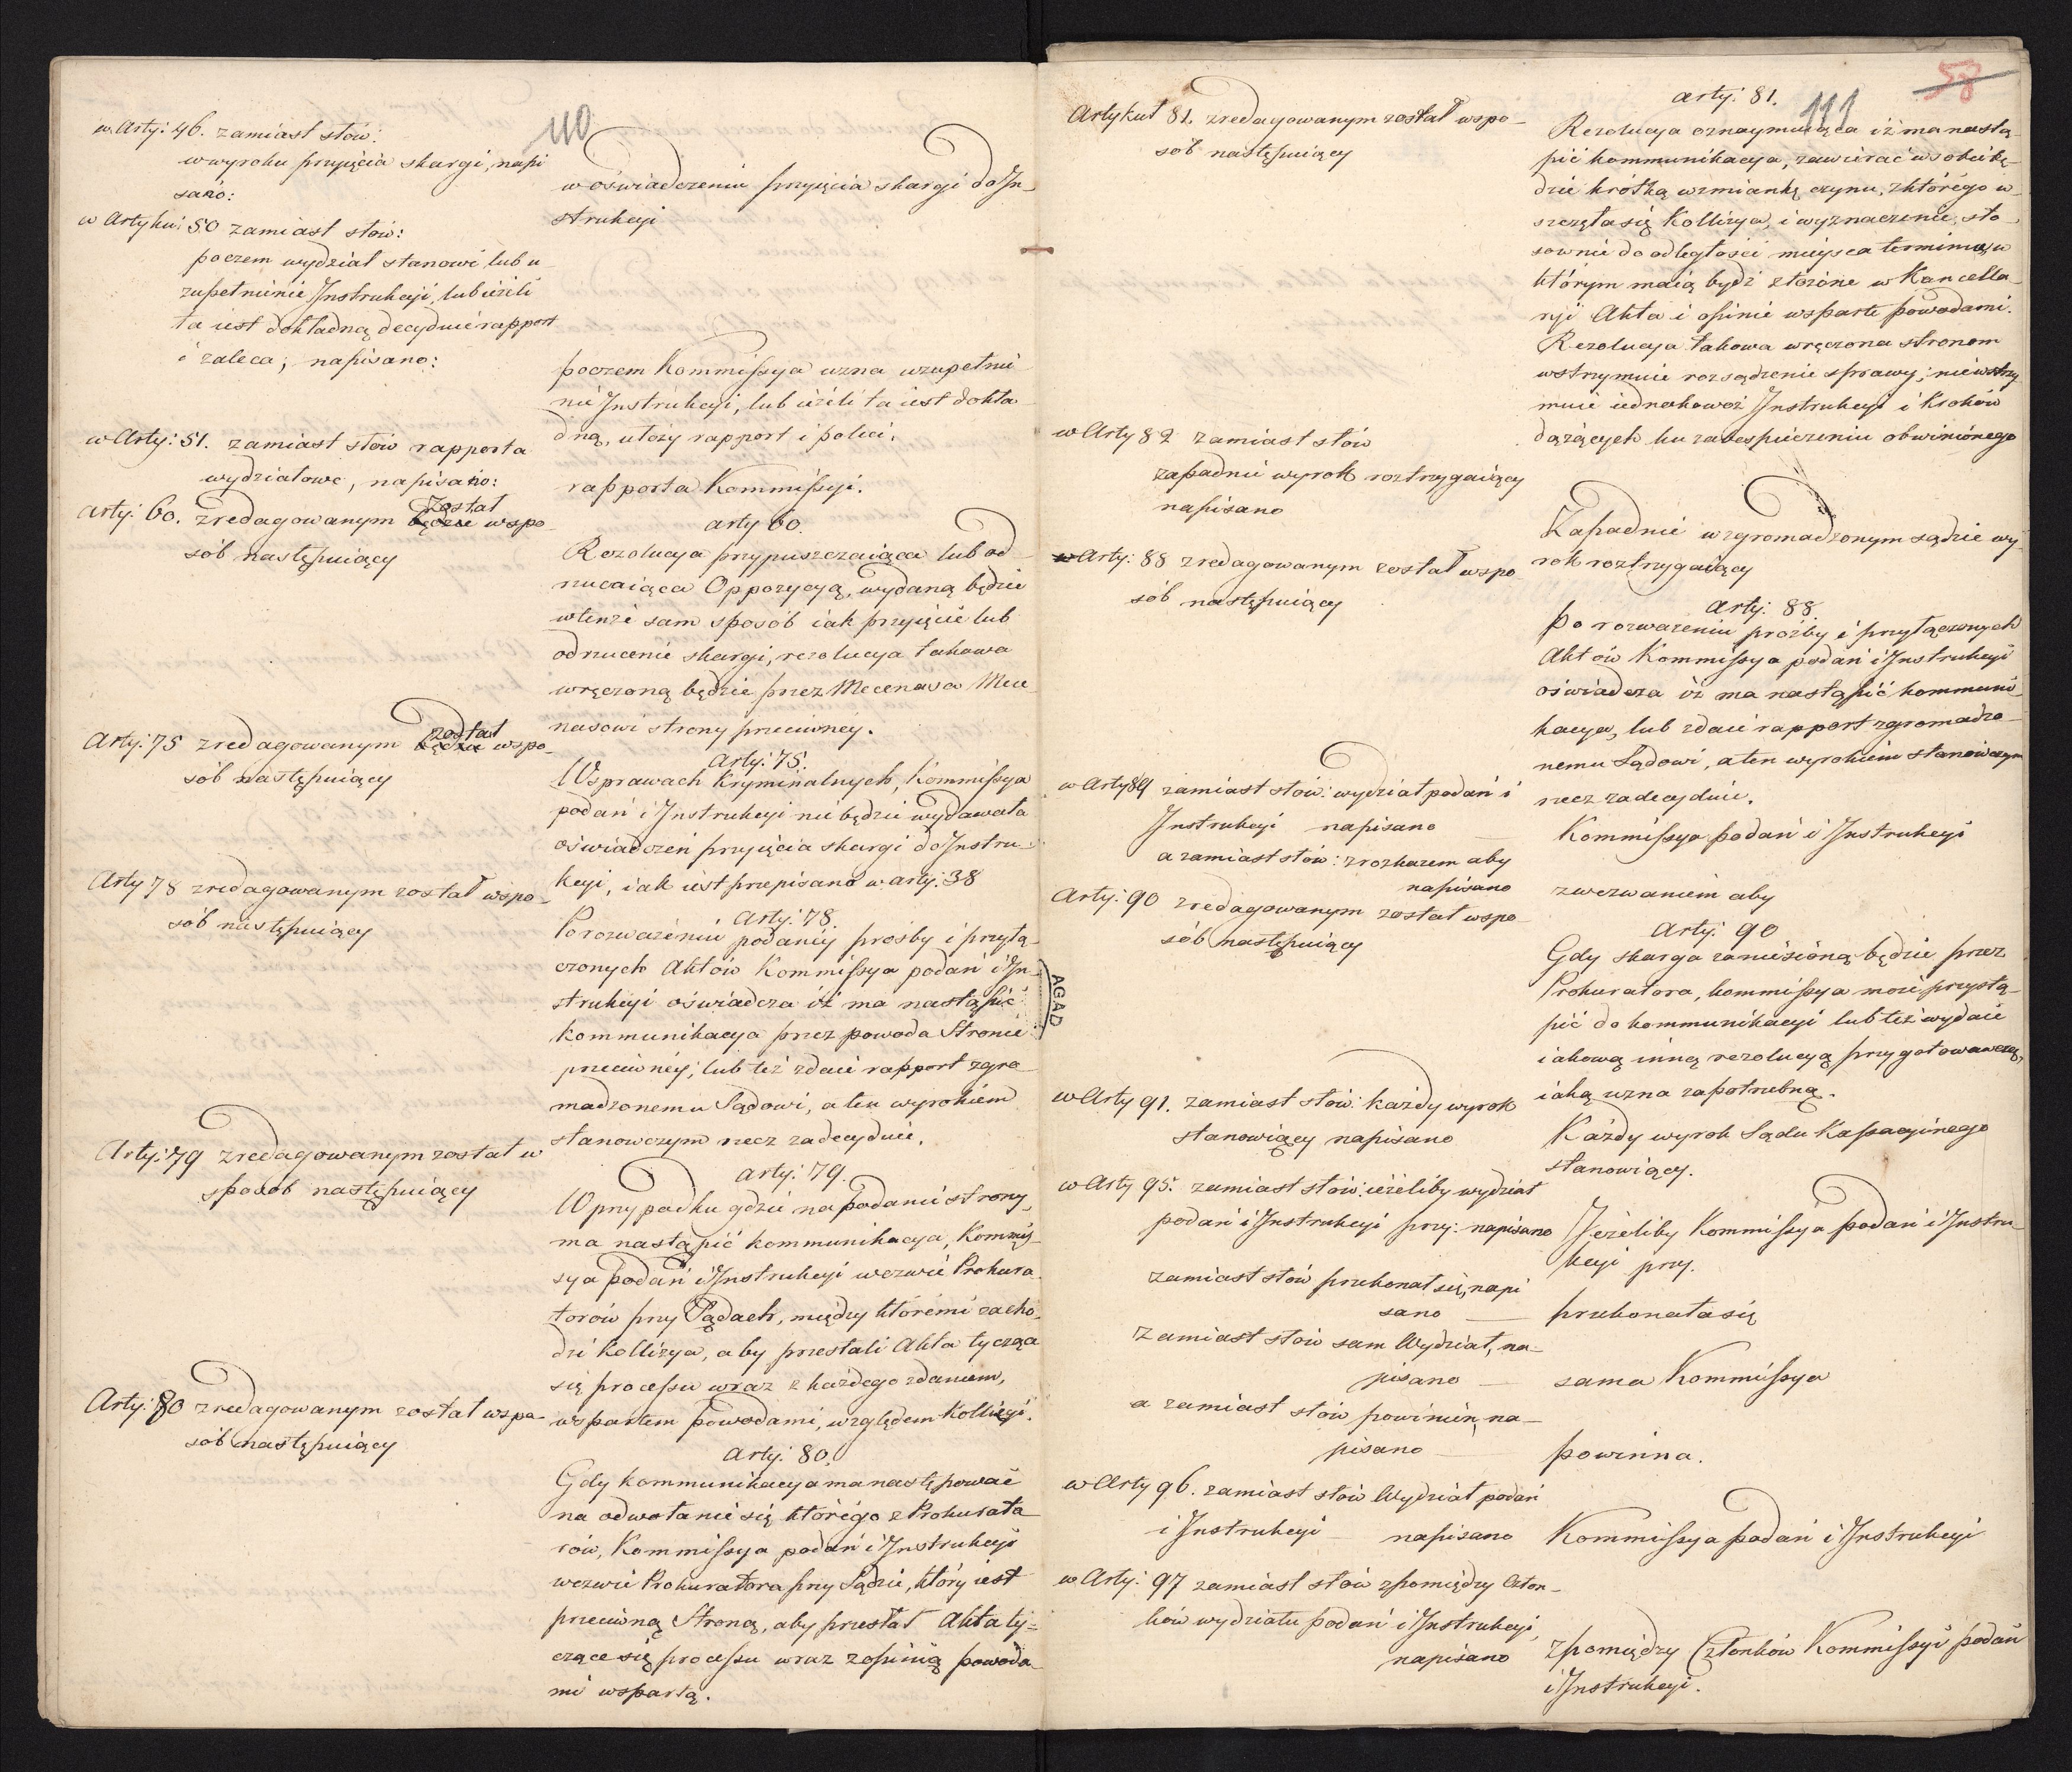 110
w Arty: 46. zamiast słów:
w wyroku przyięcia skargi, napi
sano:
w oświadczeniu przyięcia skargi do In-
strukcyi
w Artykui 50 zamiast słów:
poczem wydział stanowi lub u
zupełnienie Instrukcyi, lub ieżeli
ta iest dokładną decyduie rapport
i zaleca; napisano:
poczem Kommissya uzna uzupełnie
nie Instrukcyi, lub ieżeli ta iest dokła
dną, ułoży rapport i poleci.
w Arty: 51. zamiast słów rapporta
wydziałowe, napisano:
rapporta Kommissyi.
Arty: 60. zredagowanym został będzie wspo
sób następuiący
arty 60.
Rezolucya przypuszczaiąca lub od
rzucaiąca Oppozycyą, wydaną będzie
w tenże sam sposób iak przyięcie lub
odrzucenie skargi, rezolucya takowa
wręczoną będzie przez Mecenasa Mece
nasowi strony przeciwney.
Arty: 75 zredagowanym został będzie wspo-
sób następuiący
Arty: 75.
W sprawach Kryminalnych, Kommissya
podań i Instrukcyi nie będzie wydawała
oświadczeń przyięcia skargi do Instru-
kcyi, iak iest przepisano w arty: 38
Arty 78 zredagowanym został wspo-
sób następuiący
Arty: 78.
Po rozważeniu podaney prośby i przyłą-
czonych Aktów Kommissya podań i In-
strukcyi oświadcza iż ma nastąpić
kommunikacya przez powoda Stronie
przeciwney, lub też zdaie rapport zgro-
madzonemu Sądowi, a ten wyrokiem
stanowczym rzecz zadecyduie.
Arty: 79 zredagowanym został w
sposob następuiący
arty: 79.
W przypadku gdzie na podanie strony,
ma nastąpić kommunikacya, Kommis-
sya podań i Instrukcyi wezwie Prokura-
torów przy Sądach, między któremi zacho-
dzi Kollizya, aby przesłali Akta tyczące
się processu wraz z każdego zdaniem,
wspartem powodami, względem Kollizyi.
Arty: 80 zredagowanym został wspo-
sób następuiący
Arty: 80.
Gdy kommunikacya ma następować
na odwołanie się którego z Prokurato
rów, Kommissya podań i Instrukcyi
wezwie Prokuratora przy Sądzie, który iest
przeciwną Stroną, aby przesłał Akta ty-
czące się processu wraz z opinią powoda-
mi wspartą.
AGAD
58
111
Artykuł 81. zredagowanym został wspo-
sób następuiący
arty: 81.
Rezolucya oznaymuiąca iż ma nastą-
pić kommunikacya, zawierać w sobie bę-
dzie krótką wzmiankę czynu, z którego w-
szczęła się Kollizya, i wyznaczenie, sto-
sownie do odległości mieysca terminu, w
którym maią bydź złożone w Kancella-
ryi Akta i opinie wsparte powodami.
Rezolucya takowa wręczona stronom
wstrzymuie rozsądzenie sprawy; nie wstrzy
muie iednakoważ Instrukcyi i Kroków
dążących ku zabespieczeniu obwinionego
w Arty 82 zamiast słów
zapadnie wyrok roztrzygaiący
napisano
Zapadnie w zgromadzonym sądzie wy-
rok roztrzygaiący
w Arty: 88 zredagowanym został wspo
sób następuiący
Arty: 88.
Po rozważeniu prośby i przyłączonych
Aktów Kommissya podań i Instrukcyi
oświadcza iż ma nastąpić kommuni-
kacya, lub zdaie rapport zgromadzo-
nemu Sądowi, a ten wyrokiem stanowczym
rzecz zadecyduie.
w Arty 89 zamiast słów: wydział podań i
Instrukcyi napisano
Kommissya podań i Instrukcyi
a zamiast słów: z rozkazem aby
napisano
z wezwaniem aby
Arty: 90 zredagowanym został wspo-
sób następuiący
Arty: 90
Gdy skarga zaniesioną będzie przez
Prokuratora, kommissya może przystą-
pić do kommunikacyi lub też wydaie
iakową inną rezolucyą przygotowawczą,
iaką uzna za potrzebną.
w Arty 91. zamiast słów: każdy wyrok
stanowiący napisano
Każdy wyrok Sądu Kassacyinego
stanowiący.
w Arty 95. zamiast słów: ieżeliby wydział
podań i Instrukcyi przy: napisano
Jeżeliby Kommissya podań i Instru-
kcyi przy.
zamiast słów przekonał się, napi
sano
przekonała się
zamiast słów sam Wydział, na-
pisano
sama Kommissya
a zamiast słów powinien, na-
pisano
powinna.
w Arty 96. zamiast słów Wydział podań
i Instrukcyi napisano
Kommissya podań i Instrukcyi
w Arty: 97 zamiast słów z pomiędzy Człon-
ków wydziału podań i Instrukcyi,
napisano
z pomiędzy Członków Kommissyi podań
i Instrukcyi.